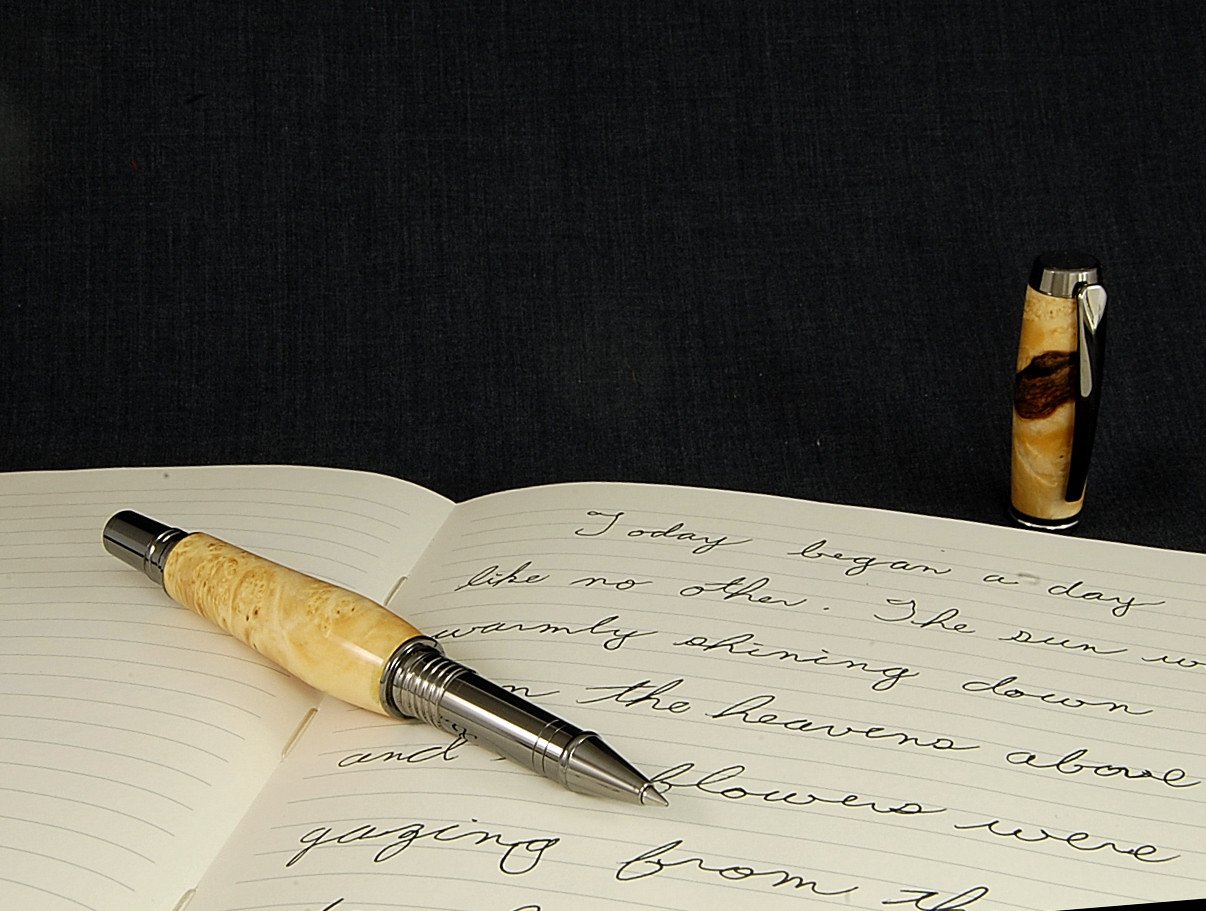 Today began a day
like no other. The sun w
warmly shining down
n the heavens above
and blowers were
gazing from th